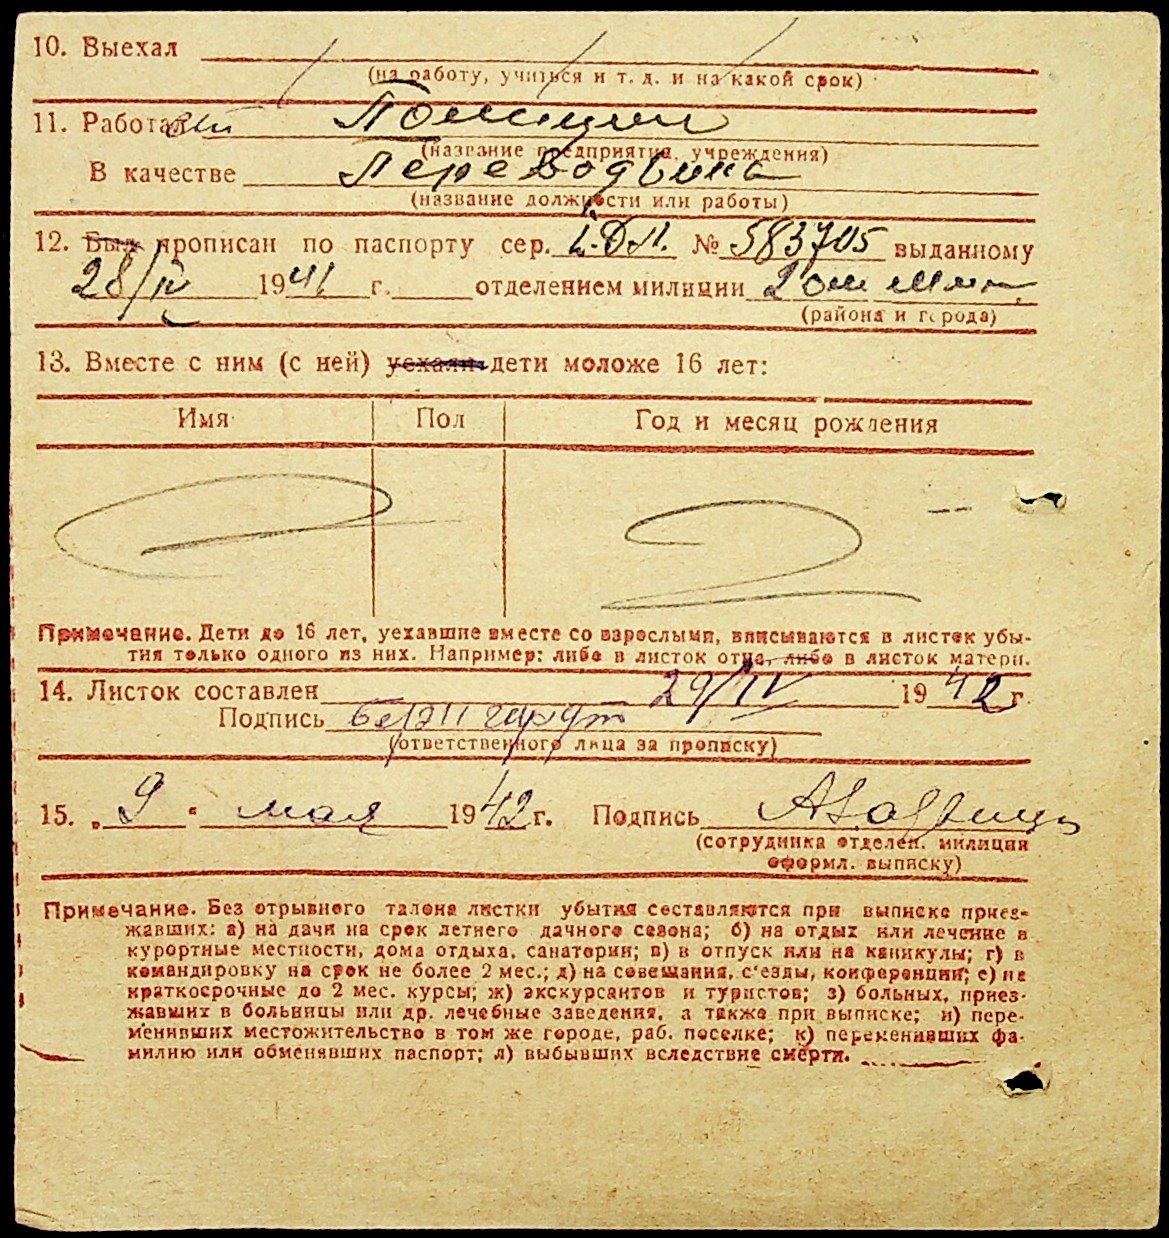 10. Выехал
(на работу, учиться и т. д. и на какой срок)
11. Работает Полиции
(название предприятия, учреждения)
В качестве Переводчика
(название должности или работы)
12. Был прописан по паспорту сер. № 583705 выданному
28/IV 1941 г. отделением милиции 2 отд. мил.
(района и города)
13. Вместе с ним (с ней) уехали дети моложе 16 лет:
Имя Пол Год и месяц рождения
Примечание. Дети до 16 лет, уехавшие вместе со взрослыми, вписываются в листок убы-
тия только одного из них. Например: либо в листок отца, либо в листок матери.
14. Листок составлен 29/IV 1942 г.
Подпись Бернгардт
(ответственного лица за прописку)
15. „9" мая 1942 г. Подпись
(сотрудника отделен. милиции
оформл. выписку)
Примечание. Без отрывного талона листки убытия составляются при выписке приез-
жавших: а) на дачи на срок летнего дачного сезона; б) на отдых или лечение в
курортные местности, дома отдыха, санатории; в) в отпуск или на каникулы; г) в
командировку на срок не более 2 мес.; д) на совещания, с'езды, конференции; е) на
краткосрочные до 2 мес. курсы; ж) экскурсантов и туристов; з) больных, приез-
жавших в больницы или др. лечебные заведения, а также при выписке; и) пере-
менивших местожительство в том же городе, раб. поселке; к) переменивших фа-
милию или обменявших паспорт; л) выбывших вследствие смерти.